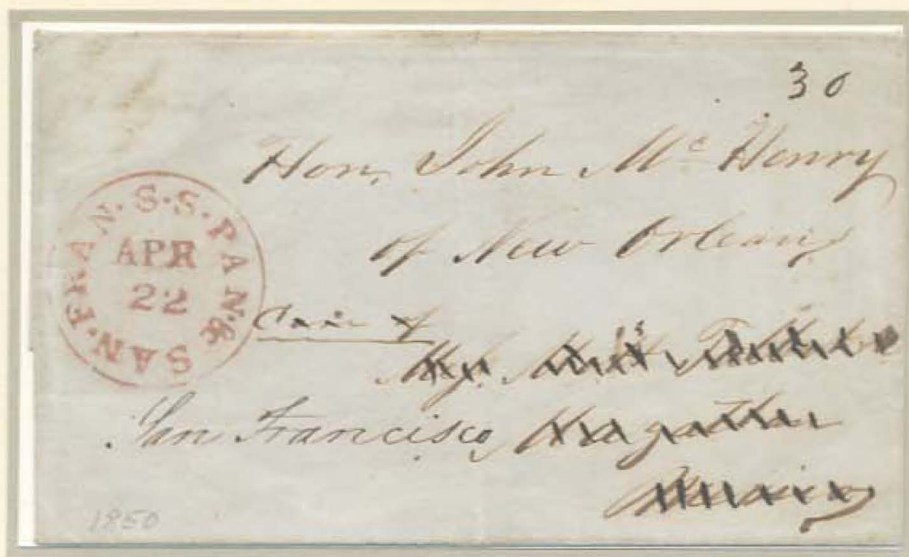 30
Hon. John Mc Henry
of New Orleans
SAN·FRAN·S·S·PAN·&
APR
22
Care of
San Francisco
1850